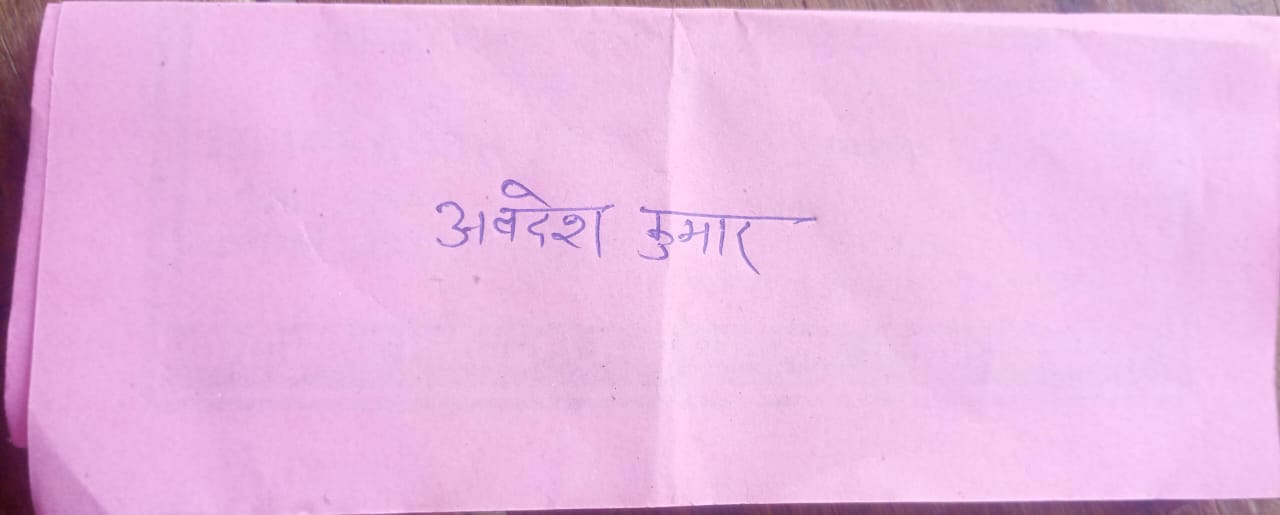 अवदेश कुमार